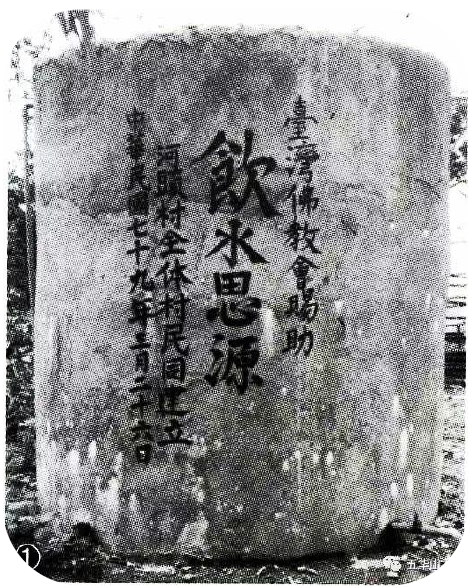 臺灣佛教會賜助
飲水思源
河頭村全体村民同建立
中華民國七十九年三月二十六日
①
五华山